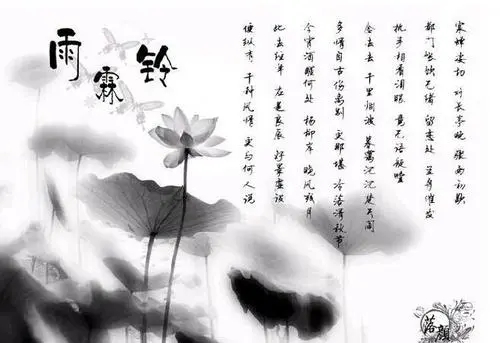 雨霖铃
寒蝉凄切 对长亭晚 骤雨初歇
都门帐饮无绪 留恋处 兰舟催发
执手相看泪眼 竟无语凝噎
念去去 千里烟波 暮霭沉沉楚天阔
多情自古伤离别 更那堪 冷落清秋节
今宵酒醒何处 杨柳岸 晓风残月
此去经年 应是良辰 好景虚设
便纵有 千种风情 更与何人说
落颜